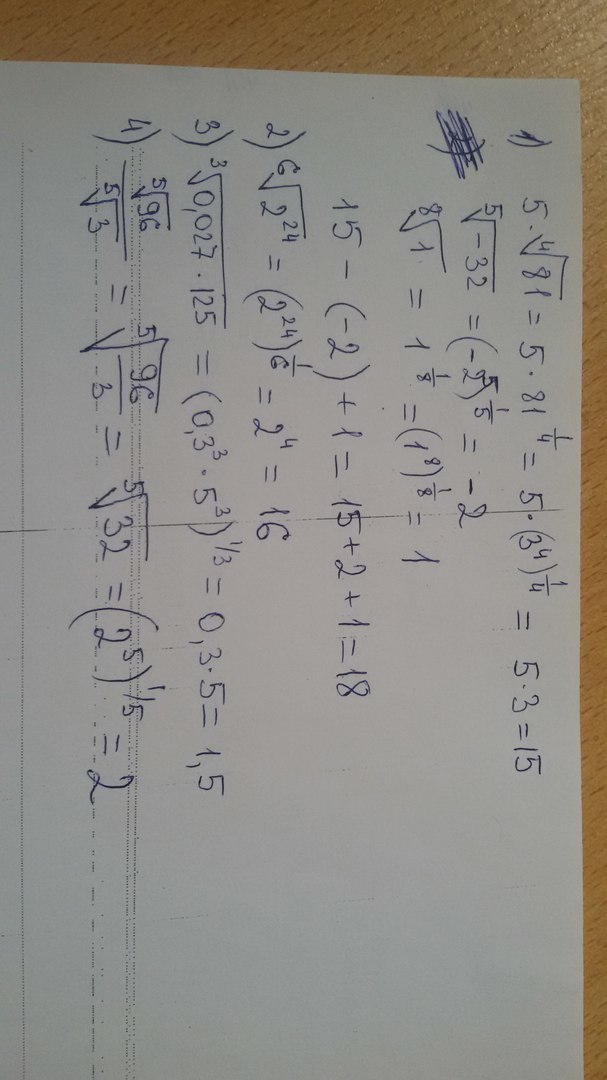 1) 5·∜81 = 5·81^(1/4) = 5·(3⁴)^(1/4) = 5·3=15
⁵√-32 = (-2⁵)^(1/5) = -2
⁸√1 = 1^(1/8) = (1⁸)^(1/8) = 1
15 - (-2) + 1 = 15 + 2 + 1 = 18
2) ⁶√2²⁴ = (2²⁴)^(1/6) = 2⁴ = 16
3) ³√0,027·125 = (0,3³·5³)^(1/3) = 0,3·5 = 1,5
4) ⁵√96/⁵√3 = ⁵√(96/3) = ⁵√32 = (2⁵)^(1/5) = 2